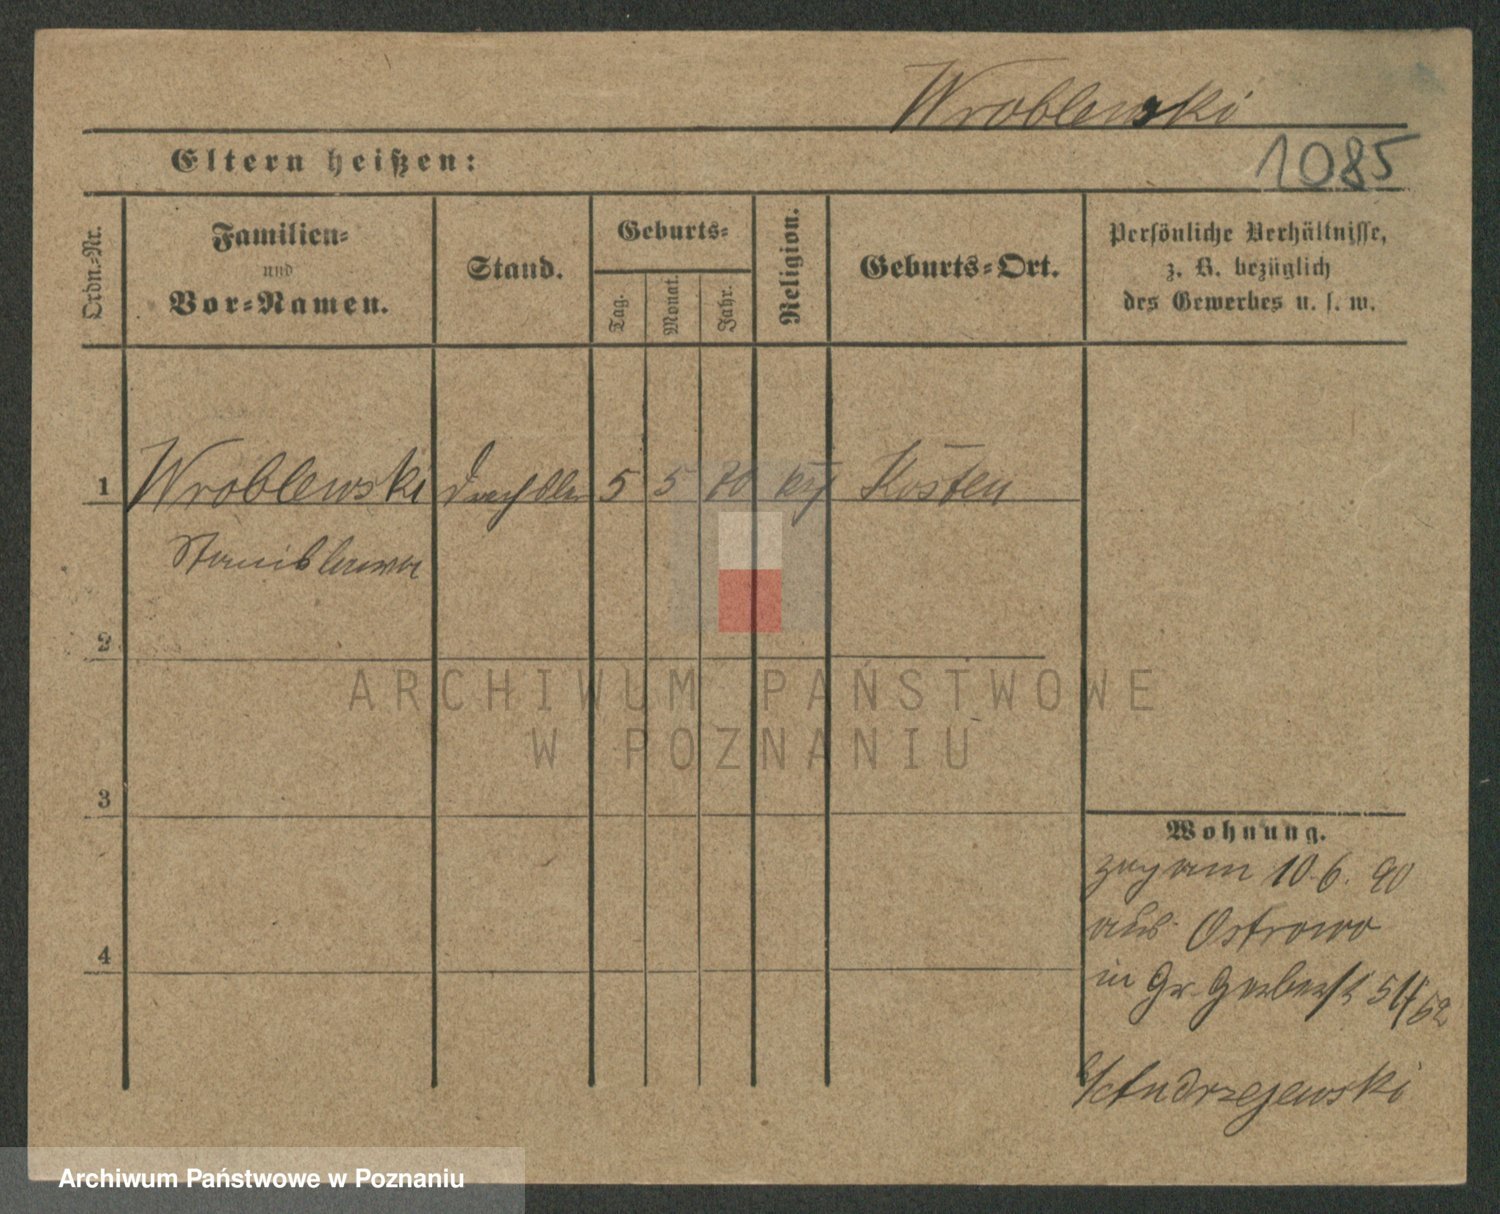 Wroblewski
1085
Eltern heißen:
Ordn.-Nr.
Familien-
und
Vor-Namen.
Stand.
Geburts-
Tag.
Monat.
Jahr.
Religion.
Geburts-Ort.
Persönliche Verhältnisse,
z. B. bezüglich
des Gewerbes u. s. w.
1 Wroblewski 5 5 70 Kosten
Stanislawa
2
3
4
Wohnung.
am 10.6.90
aus Ostrowo
in Gr. Gerberst 51/52
Andrzejewski
ARCHIWUM PAŃSTWOWE
W POZNANIU
Archiwum Państwowe w Poznaniu